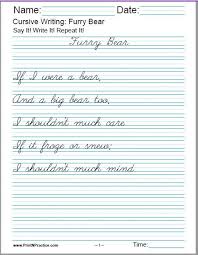 Name: Date:
Cursive Writing: Furry Bear
Say It! Write It! Repeat It!
Furry Bear
If I were a bear,
And a big bear too,
I shouldn't much care
If it froze or snew;
I shouldn't much mind
www.PrintNPractice.com ~ 1 ~ Time: